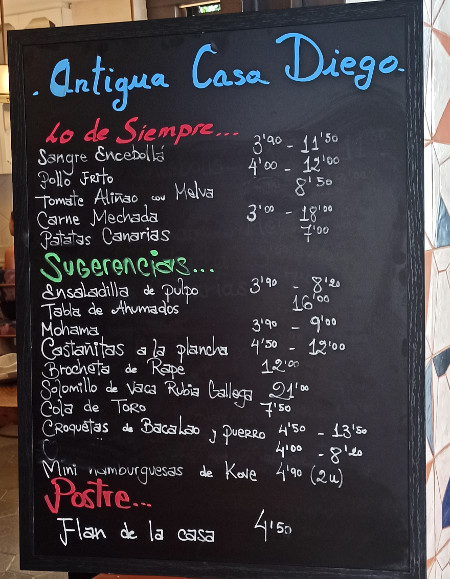 . Antigua Casa Diego.
Lo de Siempre...
Sangre Encebollá 3'90 - 11'50
Pollo Frito 4'00 - 12'00
Tomate Aliñao con Melva 8'50
Carne Mechada 3'00 - 18'00
Patatas Canarias 7'00
Sugerencias...
Ensaladilla de Pulpo 3'90 - 8'20
Tabla de Ahumados 16'00
Mohama 3'90 - 9'00
Castañitas a la plancha 4'50 - 12'00
Brocheta de Rape 12'00
Solomillo de Vaca Rubia Gallega 21'00
Cola de Toro 7'50
Croquetas de Bacalao y Puerro 4'50 - 13'50
4'00 - 8'20
Mini hamburguesas de Kove 4'90 (2u)
Postre...
Flan de la casa 4'50